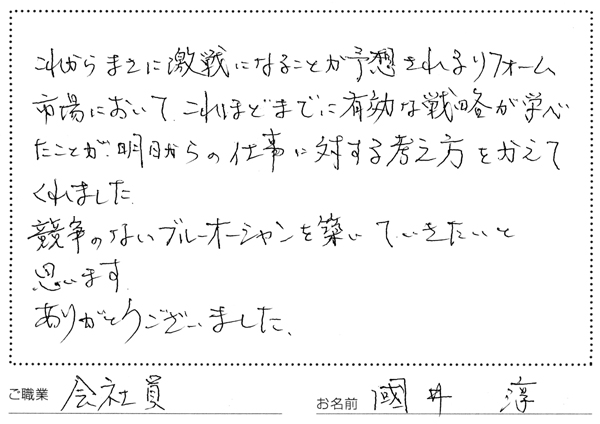 これからまさに激戦になることが予想されるリフォーム
市場において、これほどまでに有効な戦略が学べ
たことが、明日からの仕事に対する考え方をかえて
くれました。
競争のないブルーオーシャンを築いていきたいと
思います。
ありがとうございました。
ご職業 会社員 お名前 國井 淳